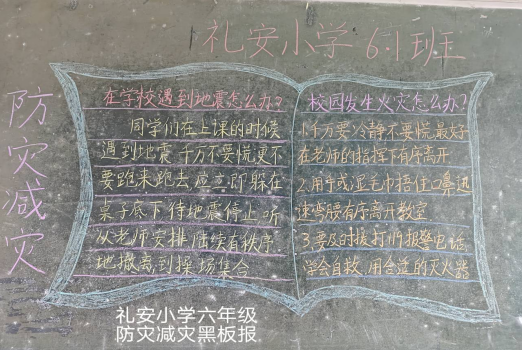 礼安小学6.1班
防灾减灾
在学校遇到地震怎么办?
同学们在上课的时候
遇到地震千万不要慌更不
要跑来跑去应立即躲在
桌子底下待地震停止听
从老师安排陆续有秩序
地撤离到操场集合
校园发生火灾怎么办?
1.千万要冷静不要慌最好
在老师的指挥下有序离开
2.用手或湿毛巾捂住口鼻迅
速弯腰有序离开教室
3.要及时拨打119报警电话
学会自救用合适的灭火器
礼安小学六年级
防灾减灾黑板报